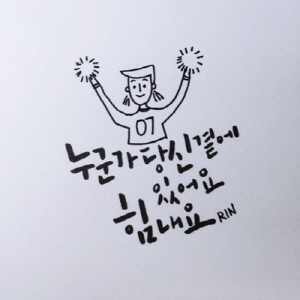 07
누군가 당신곁에
있어요
힘내요 RIN